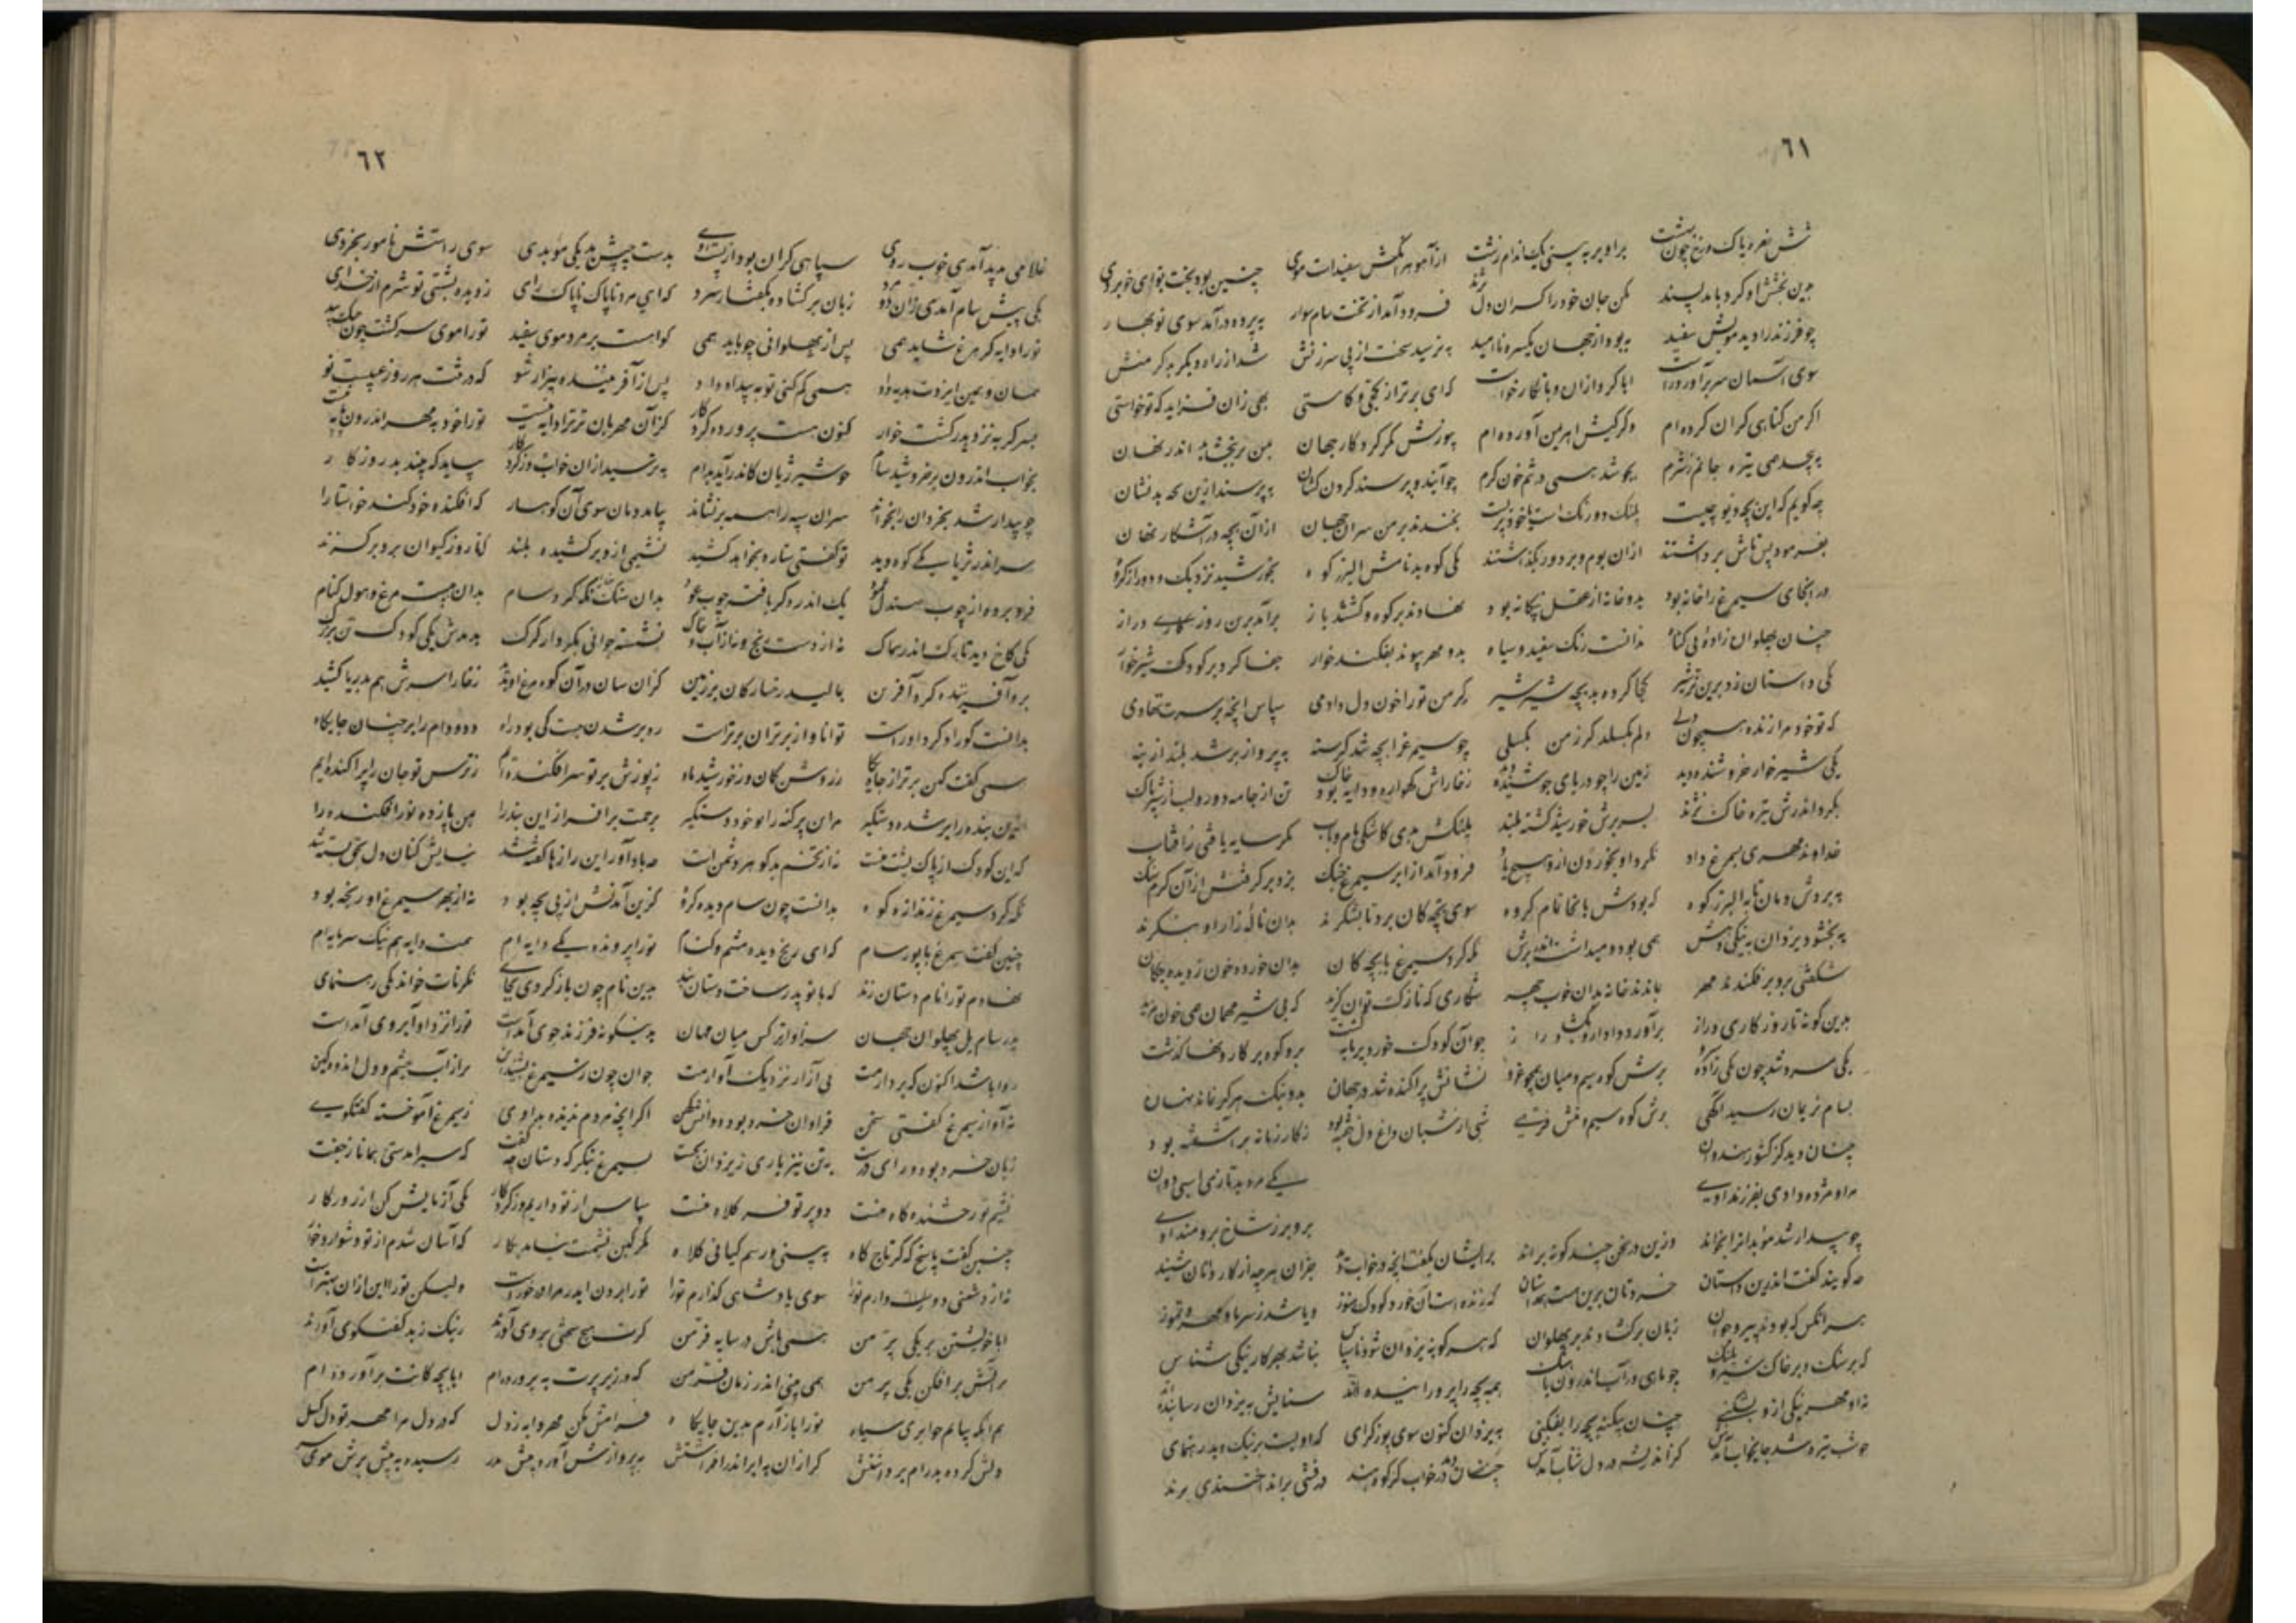 ٦١
تنش نقره پاک و رخ چون بهشت بر او بر نه بینی یک اندام زشت از آهو هر آنکش سفیدست موی چنین بود بخت تو ای خوبروی
بدین بخشش او کرد باید پسند مکن جان خود را کران دل نژند فرود آمد از تخت سام سوار به پرده درآمد سوی نوبهار
چو فرزند را دید مویش سفید به بود از جهان یکسره ناامید به ترسید سخت از پی سرزنش شد از راه دیگر به کر منش
سوی آسمان سر برآورد راست ابا کردازان و بانکار خواست که ای برتر از کجی و کاستی بهی زان فزاید که تو خواستی
اکر من کناهی کران کرده ام وکر کیش اهرمن آورده ام بپوزش مکر کردکار جهان بمن بربخشاید اندر نهان
به پیچد همی تیره جانم ز شرم بجوشد همی در تنم خون کرم چو آیند و پرسند کردن کشان به پرسند ازین بچه بدنشان
چه کویم که این بچه دیو چیست پلنک دورنکست یا خود پریست بخندند بر من سران جهان ازان بچه در آشکار و نهان
بفرمود پس تاش برداشتند ازان بوم و بر دور بکذاشتند یکی کوه بد نامش البرز کوه بخورشید نزدیک و دور از کروه
بدانجای سیمرغ را خانه بود بدو خانه از عقل بیکانه بود نهادند بر کوه و کشتند باز برآمد برین روزکاری دراز
چنان پهلوان زاده بی کناه ندانست رنک سفید و سیاه بدو مهر پیوند بفکند خوار جفا کرد بر کودک شیرخوار
یکی داستان زد برین نره شیر کجا کرده بد بچه شیر شیر که کر من تو را خون دل دادمی سپاس ایچ بر سرت نهادمی
که تو خود مرا زنده همچون دلی دلم بکسلد کر ز من بکسلی چو سیمرغ را بچه شد کرسنه به پرواز بر شد بلند از بنه
یکی شیرخوار خروشنده دید زمین را چو دریای جوشنده دید ز خاراش کهواره و دایه خاک تن از جامه دور و لب از شیر پاک
بکرد اندرش تیره خاک نژند بسر برش خورشید کشته بلند پلنکش بدی کاشکی مام و باب مکر سایه یافتی ز آفتاب
خداوند مهری بسیمرغ داد نکرد او بخوردن ازو هیچ یاد فرود آمد از ابر سیمرغ و چنک بزد بر کرفتش ازان کرم سنک
به بردش دمان تا به البرز کوه که بودش بدانجا کنام کروه سوی بچکان برد تا بشکرند بدان ناله زار او ننکرند
به بخشود یزدان نیکی دهش همی بودنی داشت اندر بوش نکه کرد سیمرغ با بچکان بدان خرد و خون ز دیده چکان
شکفتی برو بر فکندند مهر بماندند خیره بدان خوب چهر شکاری که نازکتر آن برکزید که بی شیر مهمان همی خون مزید
بدین کونه تا روزکاری دراز برآورد دارنده بکشاد راز چو آن کودک خرد پرمایه کشت برو کوه بر کاروانها کذشت
یکی مرد شد چون یکی زاد سرو برش کوه سیم و میان چو غرو نشانش پراکنده شد در جهان بد و نیک هرکز نماند نهان
بسام نریمان رسید آکهی برش کوه سیم و منش فرهی شبی از شبان داغ دل خفته بود ز کار زمانه برآشفته بود
چنان دید کز کشور هندوان یکی مرد بد تازی اسبی دوان
مرا و مژده دادی بفرزند اوی بر و برز شاخ برومند اوی
چو بیدار شد موبدانرا بخواند وزین در سخن چند کونه براند برایشان بکفت آنچه در خواب دید جزان هر چه از کاردانان شنید
چه کویید کفت اندرین داستان خردتان برین هست همداستان که زنده است آن خرد کودک هنوز و یا شد ز سرما و مهر و تموز
هر آنکس که بودند پیر و جوان زبان برکشادند بر پهلوان که هر کو به یزدان شود ناسپاس نباشد بهر کار نیکی شناس
که بر سنک و بر خاک شیر و پلنک چو ماهی در آب اندرون با نهنک همه بچه را پروراننده اند ستایش به یزدان رساننده اند
تو مهر نیکی ازو بشکنی چنان بیکنه بچه را بفکنی به یزدان کنون سوی پوزش کرای که اویست بر نیک و بد رهنمای
چو شب تیره شد جای خواب آمدش کز اندیشه در دل شتاب آمدش چنان دید در خواب کز کوه هند درفشی برافراختندی پرند
٦٢
غلامی پدید آمدی خوب روی سپاهی کران بود از پشت اوی بدست چپش بد یکی موبدی سوی راستش نامور بخردی
یکی پیش سام آمدی زان دو مرد زبان برکشاده بکفتار سرد که ای مرد ناپاک ناپاک رای ز دیده بشستی تو شرم از خدای
تو را دایه کر مرغ شاید همی پس از پهلوانی چه باید همی کر آهوست بر مرد موی سفید تو را موی سر کشت چون مشک بید
همان و همین ایزدت هدیه داد همی کم کنی تو به بیداد داد پس از آفریننده بیزار شو که در تنت هر روز عیبست نو
پسر کر به نزد پدر کشت خوار کنون هست پرورده کردکار کزان مهربان تر ترا دایه نیست تو را خود به مهر اندرون پایه نیست
بخواب اندرون بر خروشید سام چو شیر ژیان کاندر آید بدام به ترسید ازان خواب و ز کردکار بیاید که چند بد روزکار
چو بیدار شد بخردان را بخواند سران سپه را همه برنشاند بیامد دمان سوی آن کوهسار که افکنده خود کند خواستار
سر اندر ثریا یکی کوه دید تو کفتی ستاره بخواهد کشید نشیمی ازو برکشیده بلند که ناید ز کیوان برو بر کزند
فرو برده از چوب صندل عمود یک اندر دکر بافته چوب عود بدان سنک خارا نکه کرد سام بدان هیبت مرغ و هول کنام
یکی کاخ دید تارک اندر سماک نه از دست رنج و نه از آب و خاک نشسته جوانی بکردار کرک بدیدش یکی کودک تن بزرک
بر و آفریننده کرد آفرین بمالید رخسارکان بر زمین کزان سان دران کوه مرغ آفرید ز خارا سرش هم به ثریا کشید
بدانست کو دادکر داور است توانا و از برتران برتر است ره بر شدن جست کی بود راه دد و دام را بر چنان جایکاه
همی کفت کای برتر از جایکاه ز روشن کمان و ز خورشید و ماه ز پوزش بر تو سر افکنده ام ز ترس تو جان را پراکنده ام
برین بنده را بر شده دستکیر مران پرکنه را تو خود دستکیر برحمت برافراز این بنده را بمن باز ده تو را فکنده را
که این کودک از پاک پشت منست نه از تخم بدکوهر دشمنست چو با داور این رازها کفته شد نیایش کنان دل به حق بسته شد
نکه کرد سیمرغ ز اندازه کوه بدانست چون سام دید آن کروه کزین آمدنش از پی بچه بود نه از بهر سیمرغ او رنجه بود
چنین کفت سیمرغ با پور سام که ای رنج دیده نشیم و کنام تو را پرورنده یکی دایه ام همت دایه هم نیک سرمایه ام
نهادم تو را نام دستان زند که با تو پدر ساخت دستان و بند بدین نام چون باز کردی بجای بکو تات خواند یل رهنمای
پدر سام یل پهلوان جهان سرافرازتر کس میان مهان بدین کوه فرزند جوی آمدست تو را نزد او آبروی آمدست
روا باشد اکنون که بردارمت بی آزار نزدیک او آرمت جوان چون ز سیمرغ بشنید این پر از آب چشم و دل اندوهکین
به آواز سیمرغ کفتی سخن فراوان خرد بود و دانش کهن اکر چند مردم ندیده بد اوی ز سیمرغ آموخته کفتکوی
زبان خرد بود و رای درست به تن نیز یاری ز یزدان بجست بسیمرغ بنکر که دستان چه کفت که سیر آمدستی همانا ز جفت
نشیم تو رخشنده کاه منست دو پر تو فر کلاه منست سپاس از تو دارم پس از کردکار یکی آزمایش کن از روزکار
چنین کفت پاسخ که کر تاج و کاه به بینی و رسم کیانی کلاه مکر کین نشیمت نیاید بکار که آسان شدم از تو دشوار و خوار
نه از دشمنی دور دارم تو را سوی پادشاهی کذارم تو را تو را بودن ایدر مرا درخورست ولیکن تو را این ازان بهترست
ابا خویشتن بر یکی پر من همی باش در سایه فر من کرت هیچ سختی بروی آورند ز نیک و ز بد کفتکوی آورند
بر آتش برافکن یکی پر من همی بینی اندر زمان فر من که در زیر پرت به پرورده ام ابا بچکانت برآورده ام
هم آنکه بیایم چو ابری سیاه تو را باز آرم بدین جایکاه فرامش مکن مهر دایه ز دل که در دل مرا مهر تو دل کسل
دلش کرد پدرام برداشتش کرازان به ابر اندر افراشتش به پروازش آورد پیش پدر رسیده به پیش برش موی سر